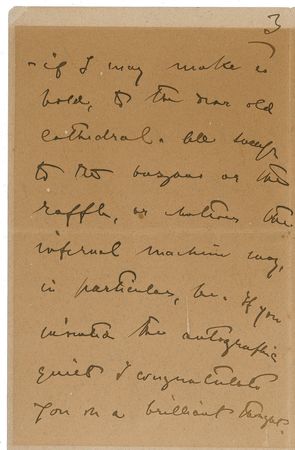 3
- if I may make so
bold, to the dear old
cathedral. All
to the bazaar or the
raffle, or whatever the
infernal machine may,
in particular, be. If you
invented the autographic
quilt I congratulate
you on a brilliant thought.